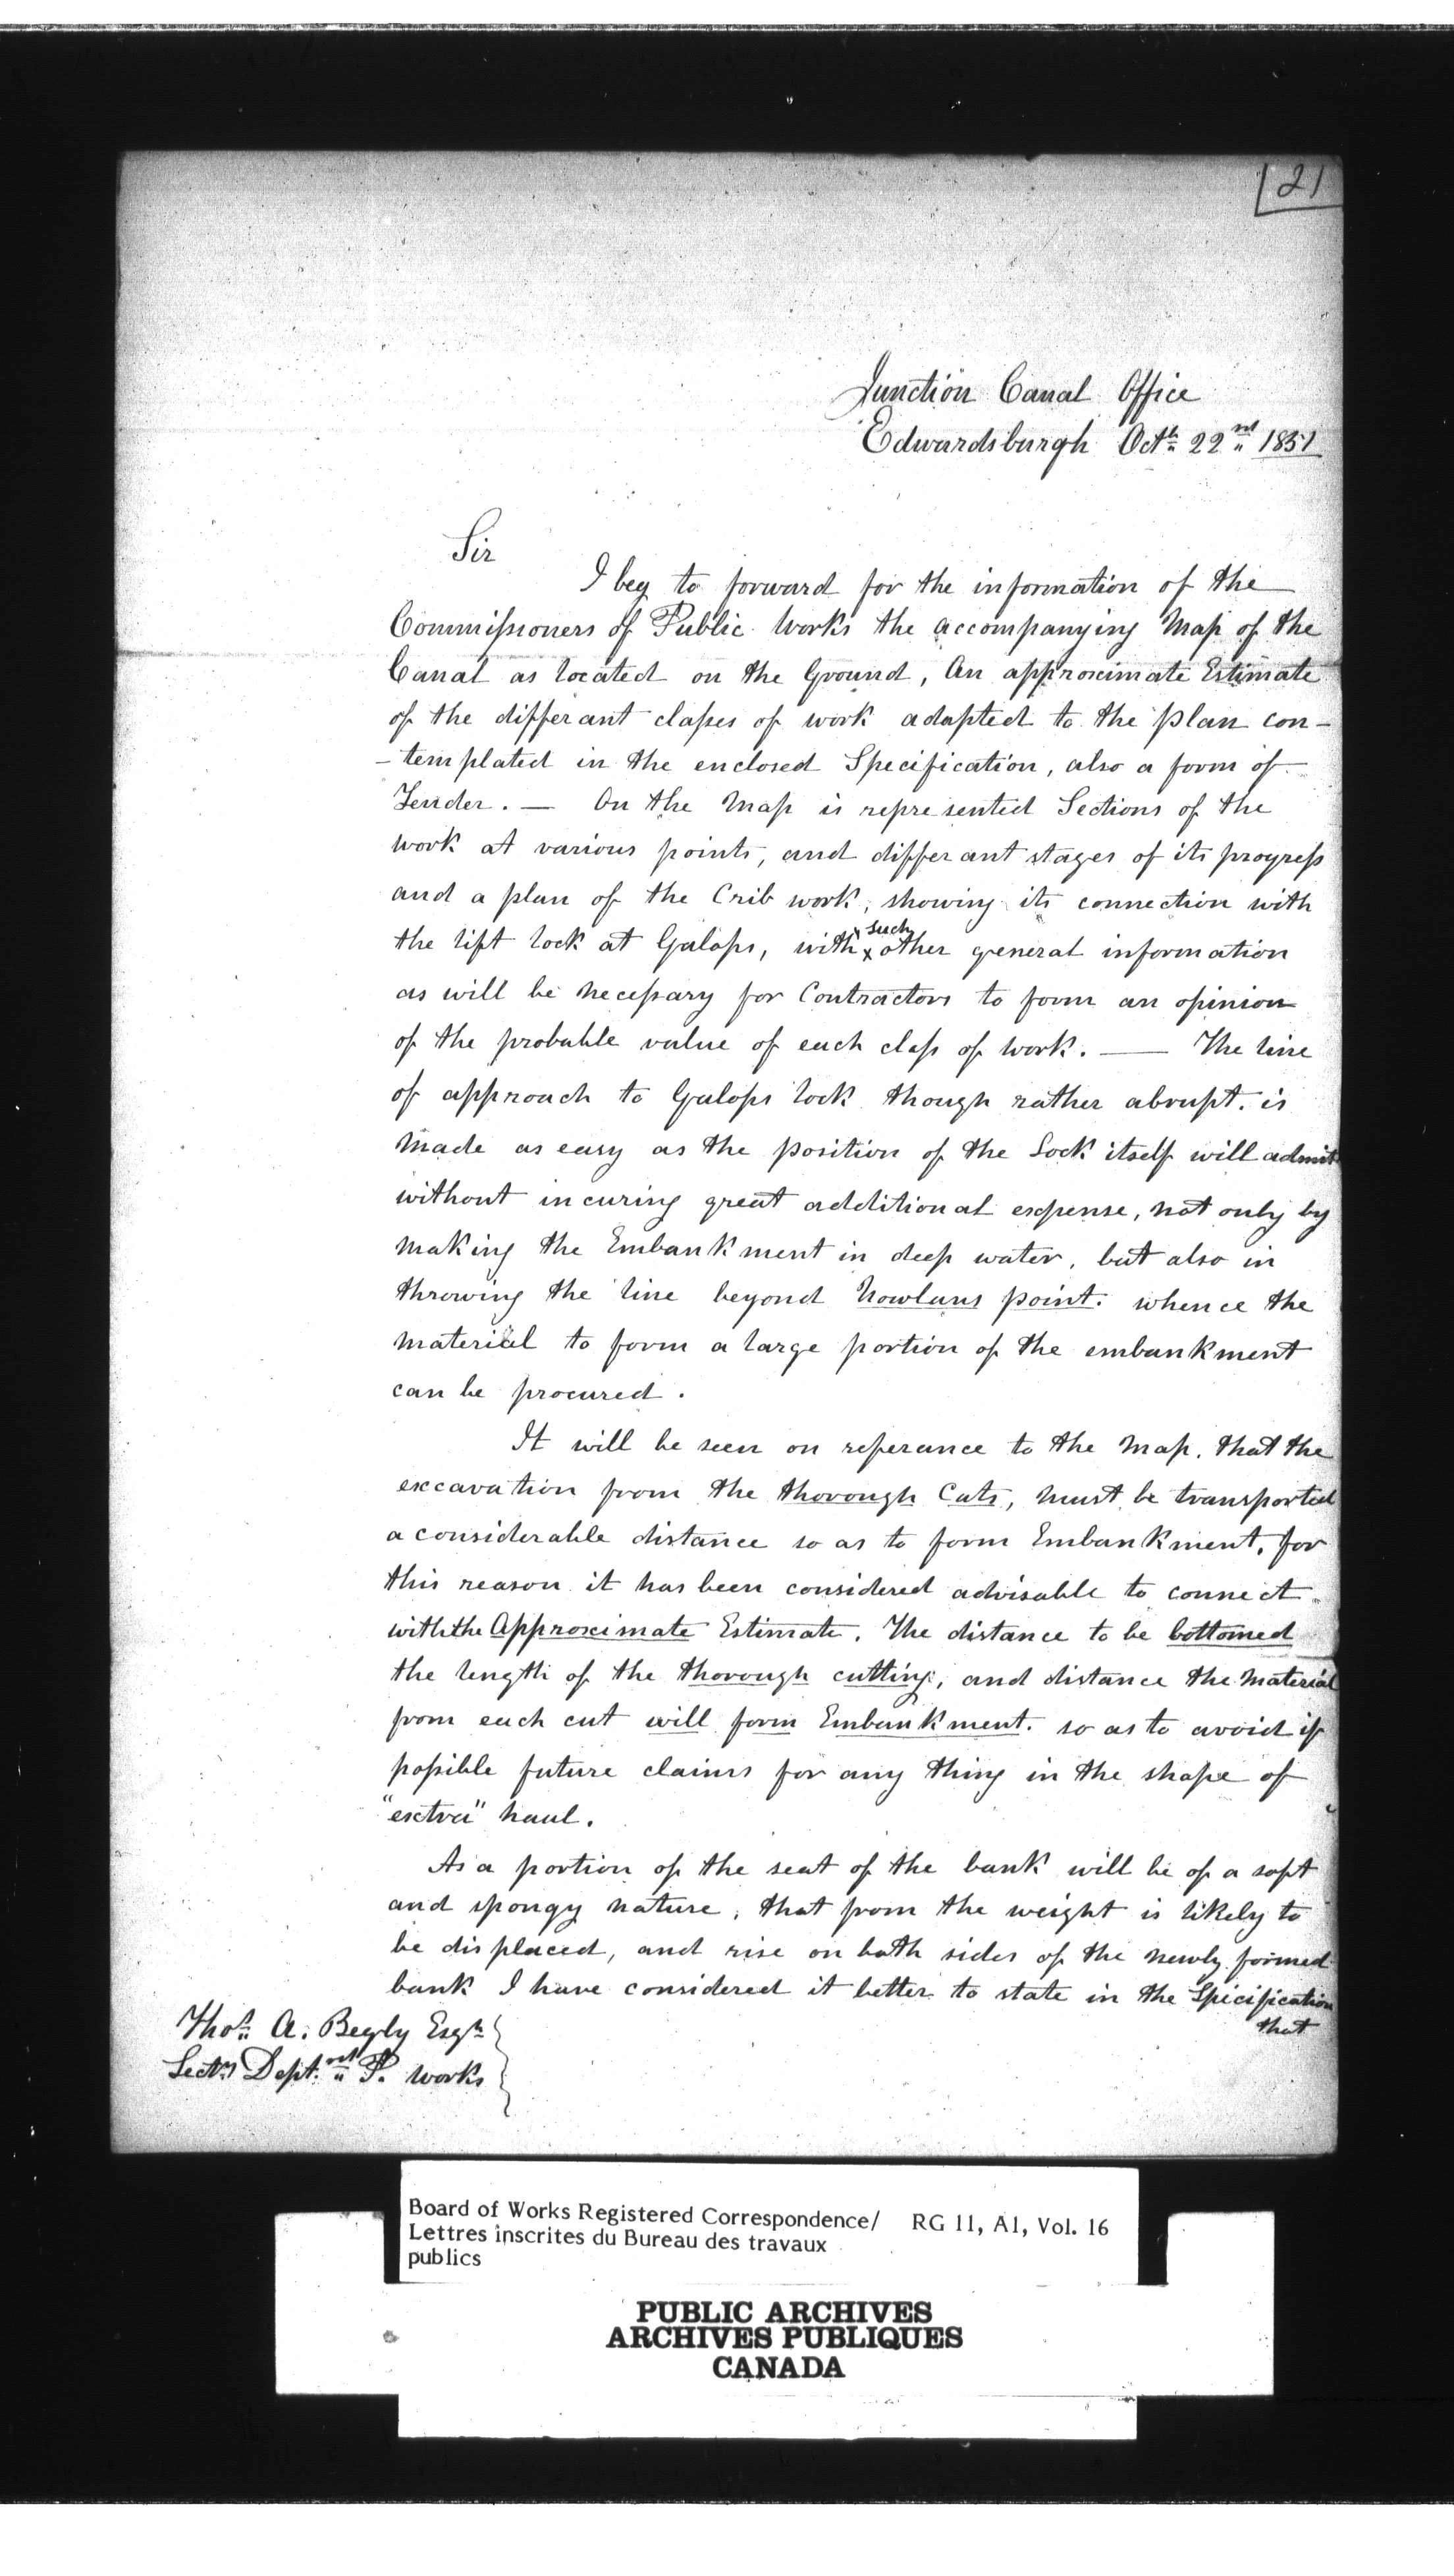 21
Junction Canal Office
Edwardsburgh Octr 22nd 1851
Sir
I beg to forward for the information of the
Commissioners of Public Works the accompanying Map of the
Canal as located on the Ground, An approximate Estimate
of the differant classes of work adapted to the plan con-
-templated in the enclosed Specification, also a form of
Tender. — On the Map is represented Sections of the
work at various points, and differant stages of its progress
and a plan of the Crib work, showing its connection with
the lift lock at Galops, with such other general information
as will be necessary for Contractors to form an opinion
of the probable value of each class of work. — The line
of approach to Galops lock though rather abrupt. is
made as easy as the position of the Lock itself will admit
without incuring great additional expense, not only by
making the Embankment in deep water, but also in
throwing the line beyond Nowlans point. whence the
material to form a large portion of the embankment
can be procured.
It will be seen on referance to the Map. that the
excavation from the thorough Cuts, must be transported
a considerable distance so as to form Embankment, for
this reason it has been considered advisable to connect
with the Approximate Estimate. The distance to be bottomed
the length of the thorough cutting, and distance the Material
from each cut will form Embankment. so as to avoid if
possible future claims for any thing in the shape of
"extra" haul.
As a portion of the seat of the bank will be of a soft
and spongy nature, that from the weight is likely to
be displaced, and rise on both sides of the newly formed
bank I have considered it better to state in the Specification
that
Thos. A. Begly Esqr
Secty Dept. P. Works
Board of Works Registered Correspondence/ RG 11, A1, Vol. 16
Lettres inscrites du Bureau des travaux
publics
PUBLIC ARCHIVES
ARCHIVES PUBLIQUES
CANADA